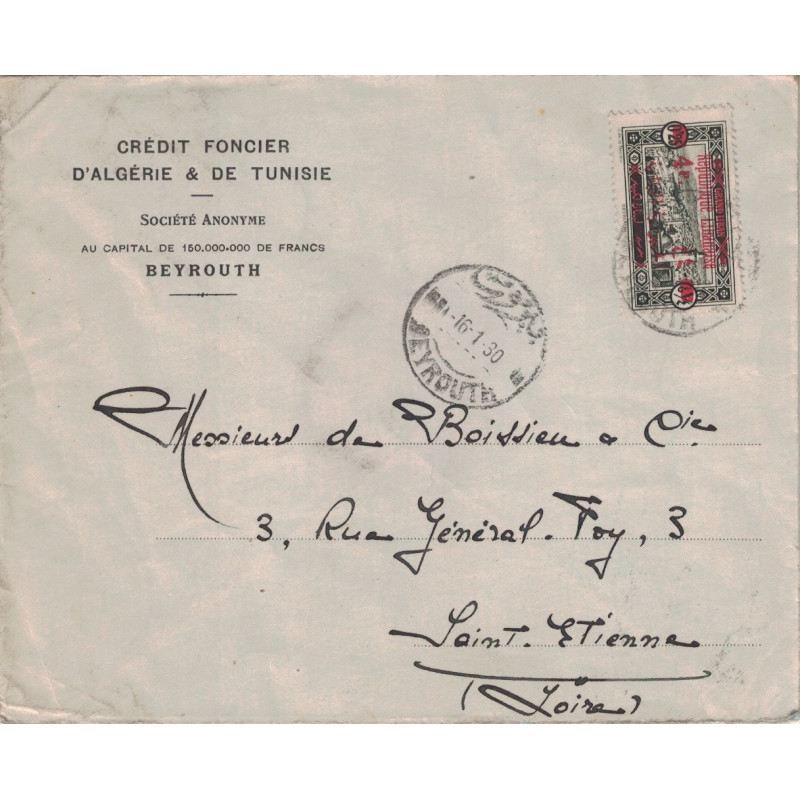 CRÉDIT FONCIER
D'ALGÉRIE & DE TUNISIE
SOCIÉTÉ ANONYME
AU CAPITAL DE 150.000.000 DE FRANCS
BEYROUTH
République Libanaise
4P
بيروت
16-1-30
BEYROUTH
Messieurs de Boissieu & Cie
3, Rue Général-Foy, 3
Saint-Etienne
(Loire)